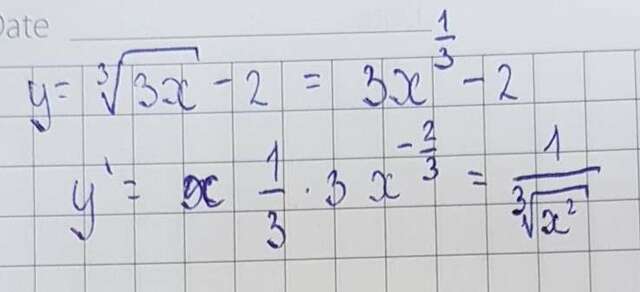 Date
y = ∛(3x) - 2 = 3x^(1/3) - 2
y' = x 1/3 · 3 x^(-2/3) = 1/∛(x²)